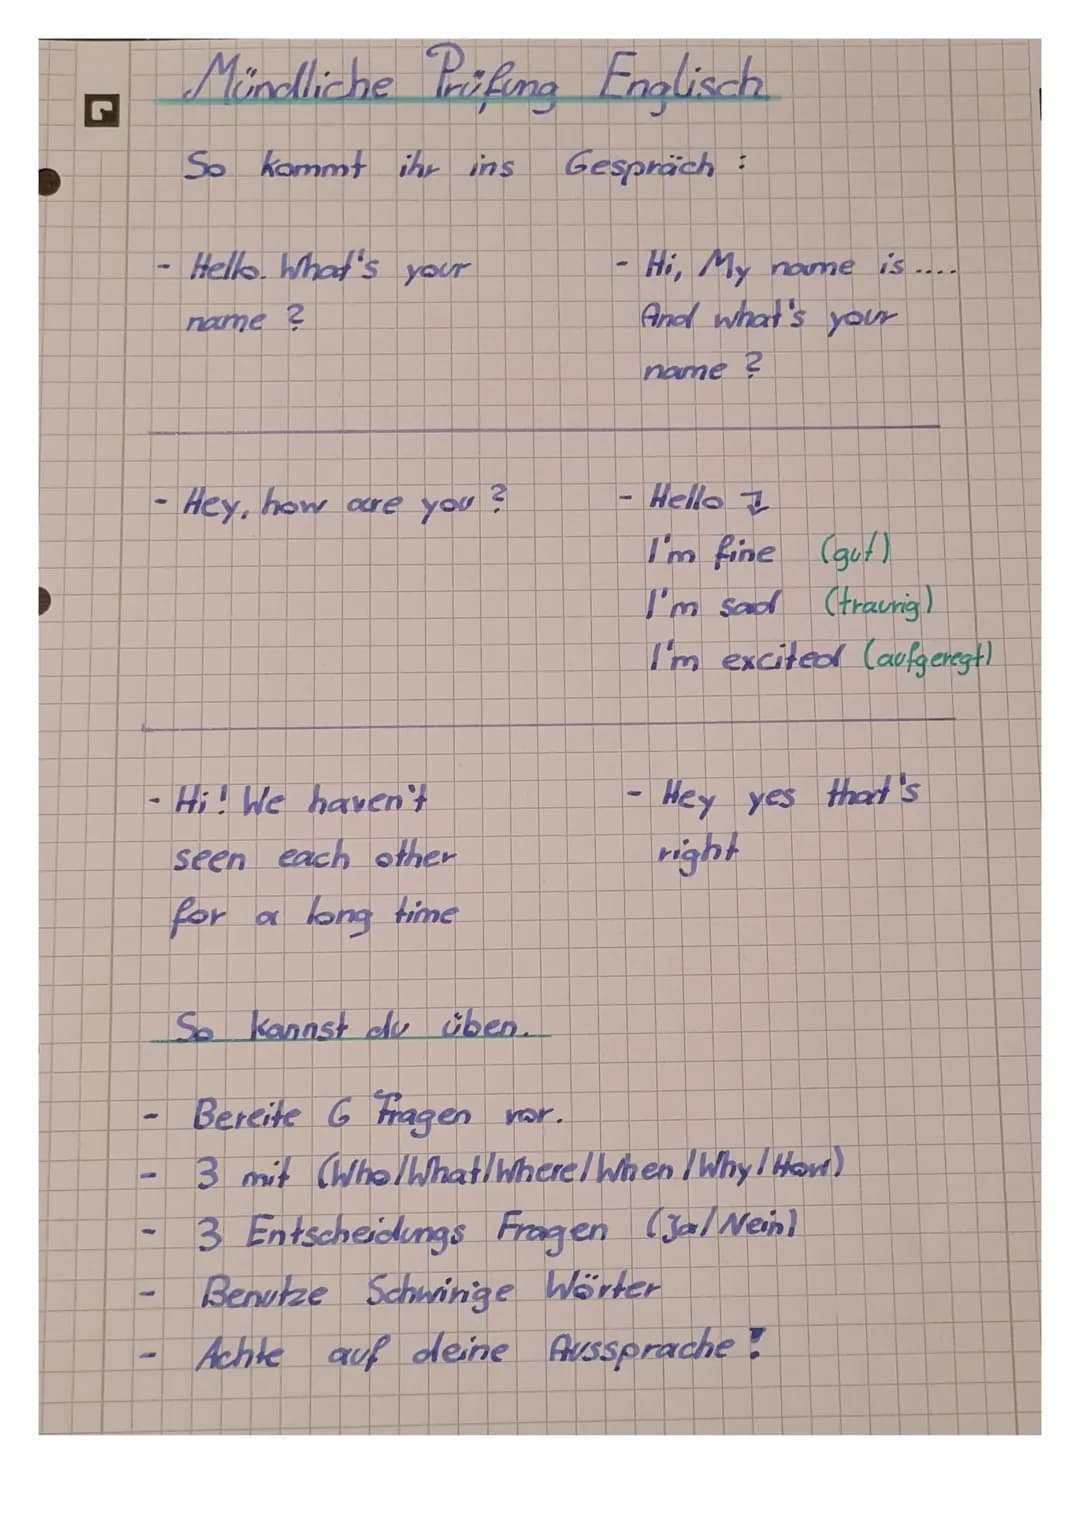 Mündliche Prüfung Englisch
So kommt ihr ins Gespräch :
- Hello. What's your
name ?
- Hi, My name is ....
And what's your
name ?
- Hey, how are you ?
- Hello ↴
I'm fine (gut)
I'm sad (traurig)
I'm excited (aufgeregt)
- Hi! We haven't
seen each other
for a long time
- Hey yes that's
right
So kannst du üben.
- Bereite 6 Fragen vor.
- 3 mit (Who/What/Where/When/Why/How)
- 3 Entscheidungs Fragen (Ja/Nein)
- Benutze Schwirige Wörter
- Achte auf deine Aussprache !